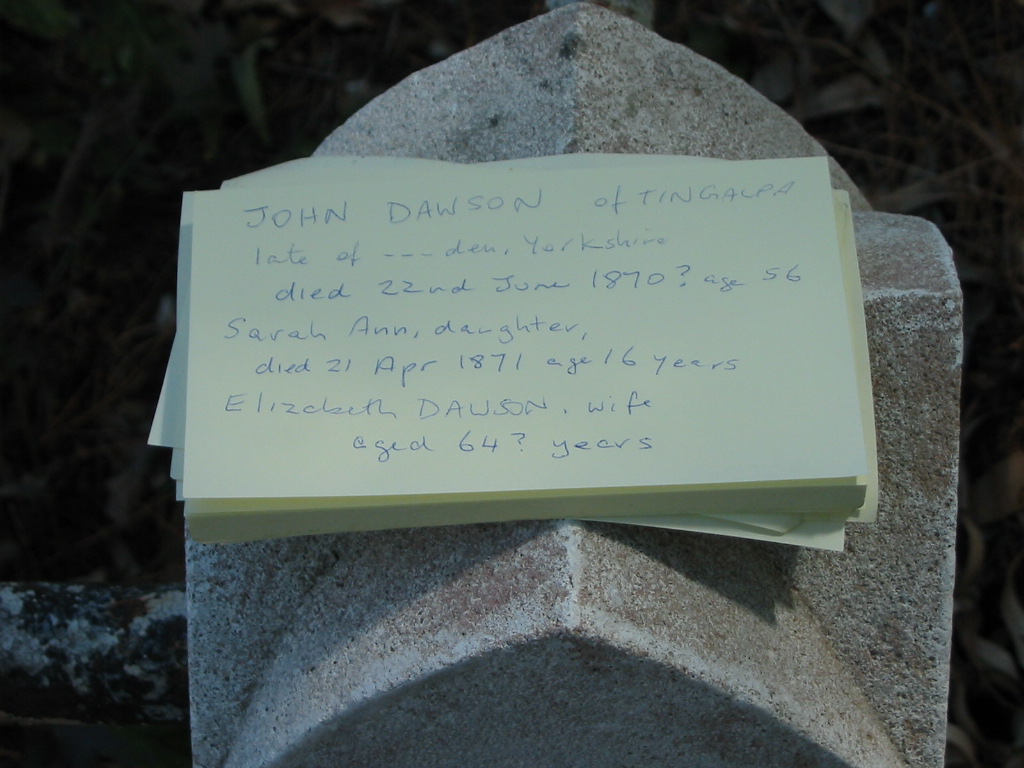 JOHN DAWSON of TINGALPA
late of --- den, Yorkshire
died 22nd June 1870? age 56
Sarah Ann, daughter,
died 21 Apr 1871 age 16 years
Elizabeth DAWSON. wife
aged 64? years